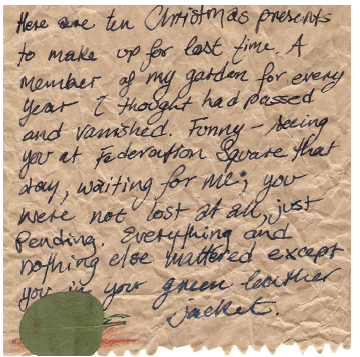 Here are ten Christmas presents
to make up for lost time. A
member of my garden for every
year I thought had passed
and vanished. Funny - seeing
you at Federation Square that
day, waiting for me; you
were not lost at all, just
pending. Everything and
nothing else mattered except
you in your green leather
jacket.